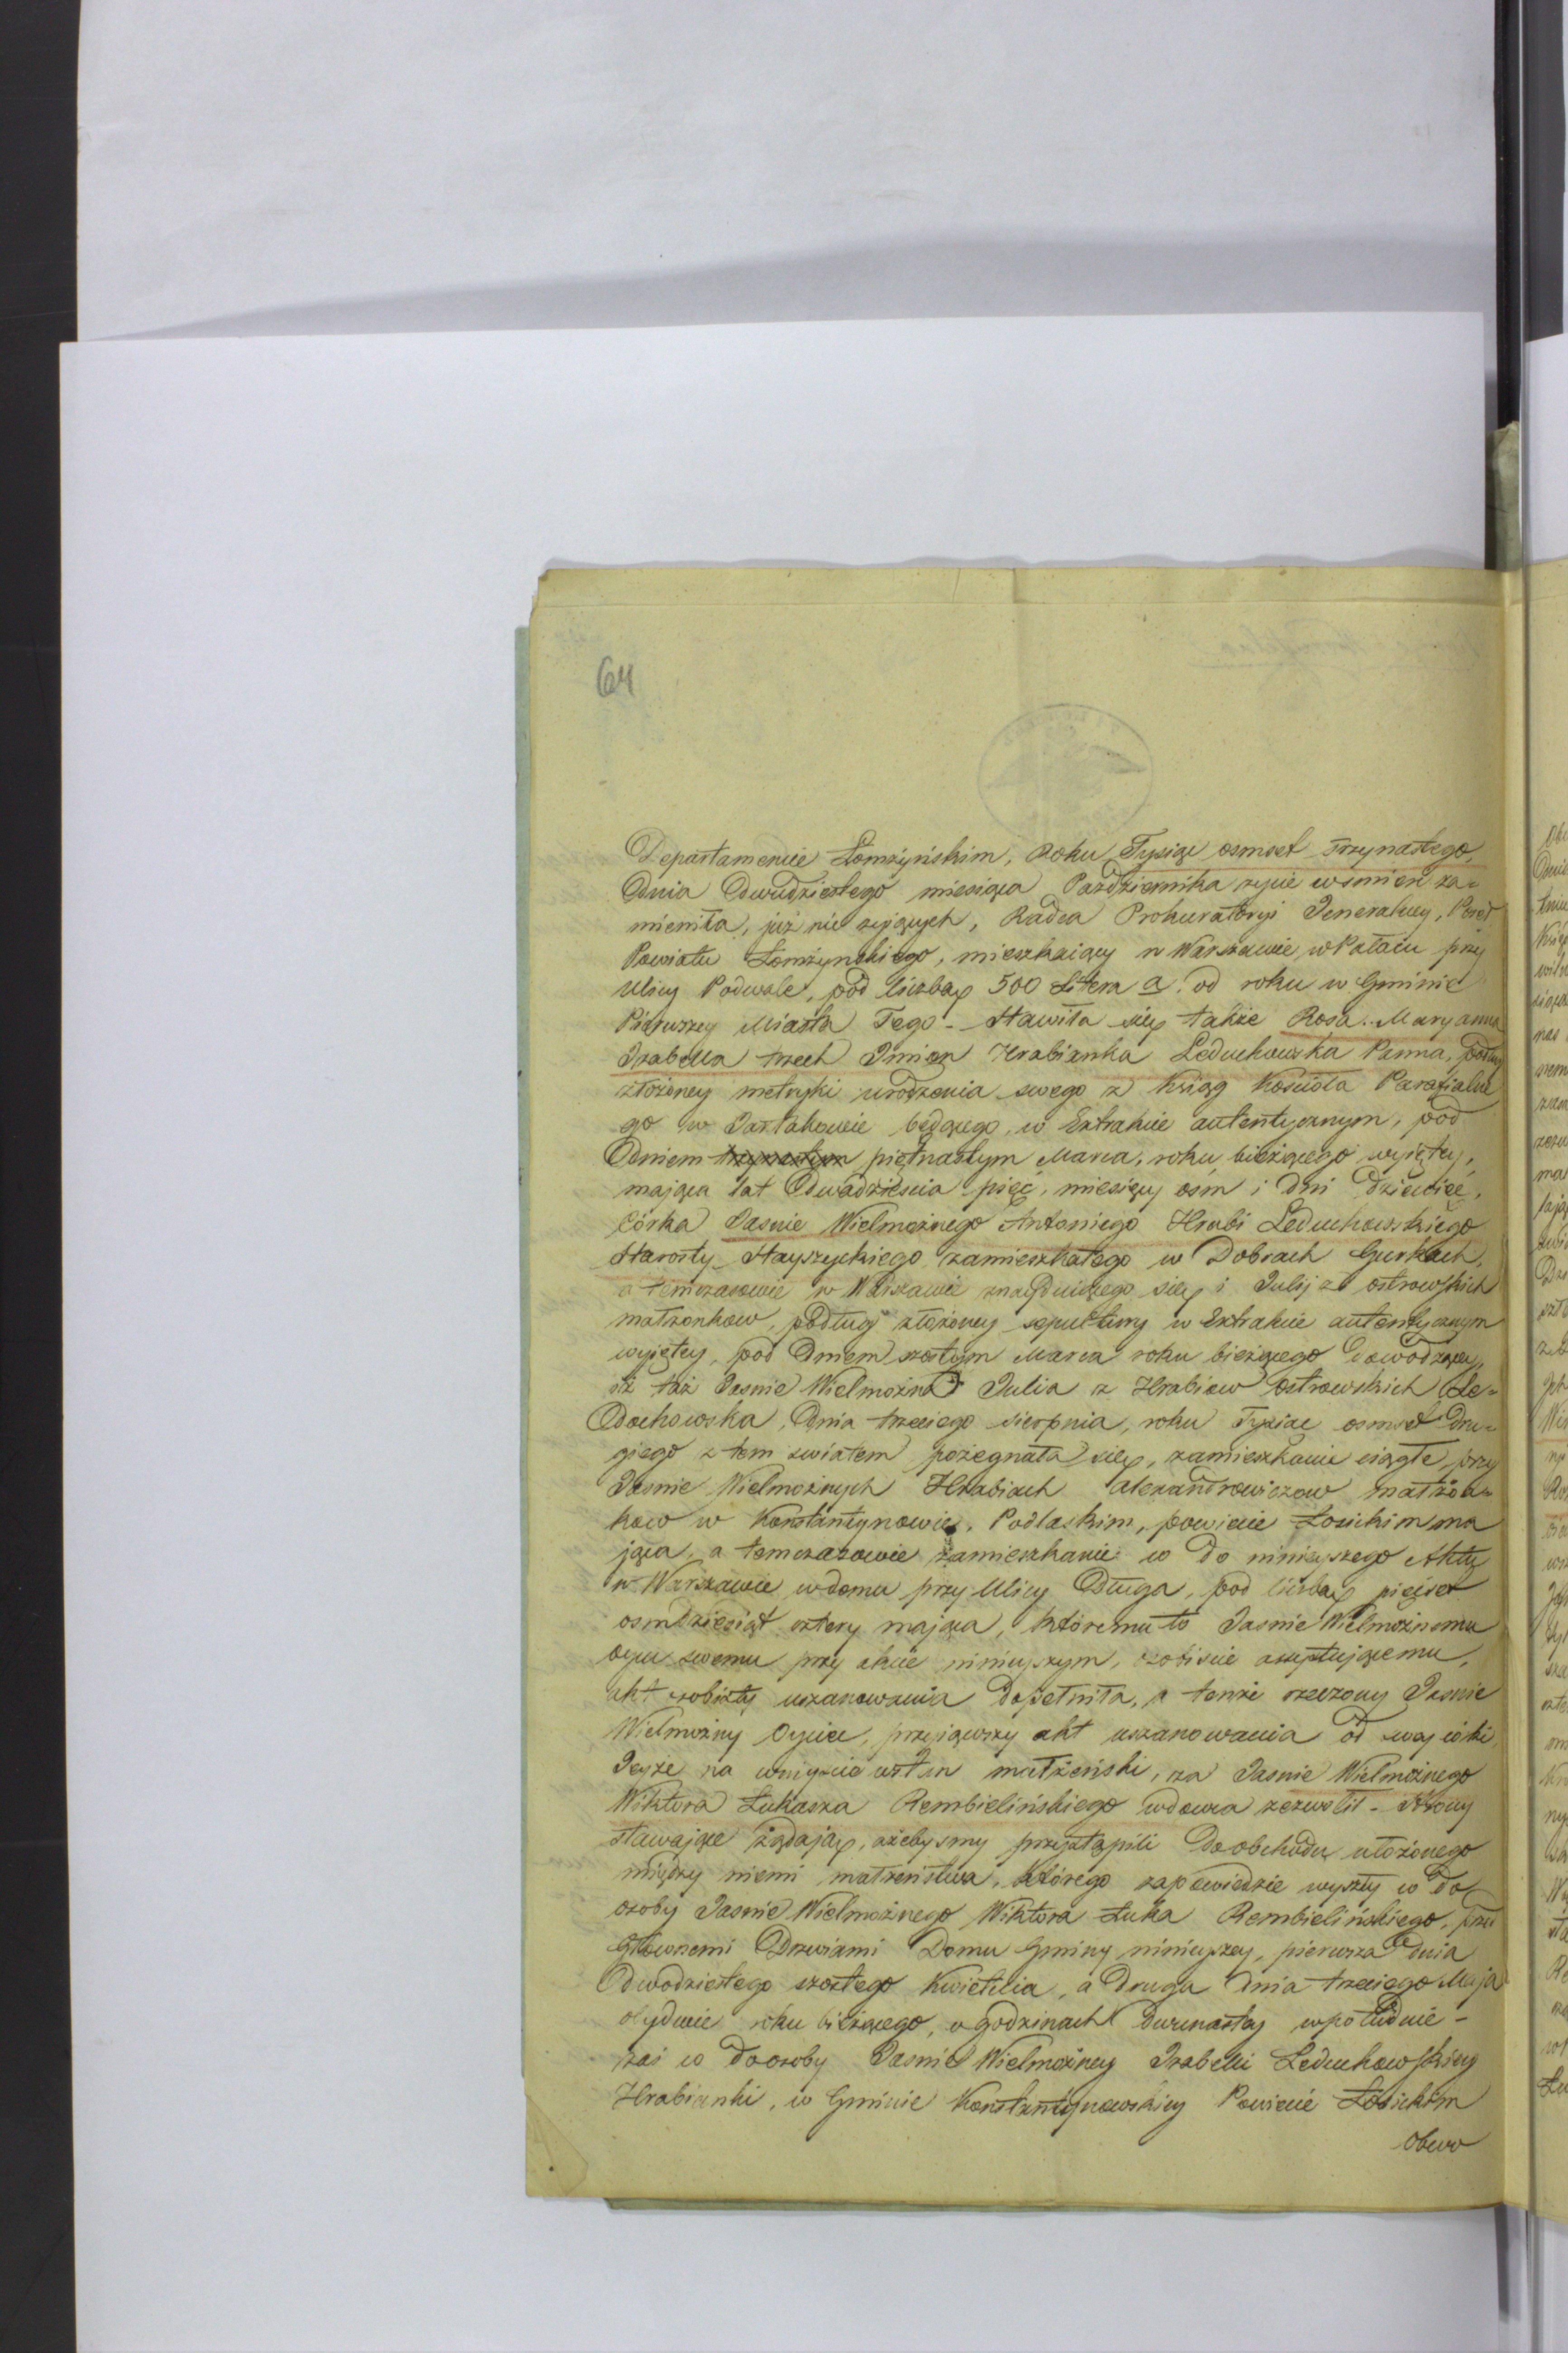 64
Departamencie Łomżyńskim, Roku Tysiąc osmset trzynastego,
Dnia Dwudziestego miesiąca Października życie w śmierć za=
mieniła, już nie żyjących, Radca Prokuratoryi Jeneralney, Poseł
Powiatu Łomżynskiego, mieszkaiący w Warszawie w Pałacu przy
Ulicy Podwale, pod liczbą 500 Litera a. od roku w Gminie
Pierwszey Miasta Tego - Stawiła się także Rosa Maryanna
Izabella trzech Imion Hrabianka Leduchowska Panna, podług
złożoney metryki urodzenia swego z Ksiąg Kościoła Parafialne
go w Tartakowie będącego, w Extrakcie autentycznym, pod
Dniem trzynastym piętnastym Marca, roku bieżącego wyjętey,
mająca lat Dwadzieścia pięć, miesięcy osm i dni dziewięć,
Córka Jasnie Wielmożnego Antoniego Hrabi Leduchowskiego
Starosty Hayszyckiego zamieszkałego w Dobrach Gurkach,
a temczasowie w Warszawie znayduiącego się i Julij z ostrowskich
małżonkow, podług złożoney sepultury w Extrakcie autentycznym
wyjętey, pod Dniem szostym Marca roku bieżącego dowodzącey,
iż taż Jasnie Wielmożna Julia z Hrabiow Ostrowskich Le=
Dochowska, Dnia trzeciego sierpnia, roku Tysiąc osmset dru=
giego z tem swiatem pożegnała się, zamieszkanie ciągłe przy
Jasnie Wielmożnych Hrabiach Alexandrowiczow małżon=
kow w Konstantynowie, Podlaskim, powiecie Łosickim ma
jąca, a temczasowie zamieszkanie co do niniejszego Aktu
w Warszawie w domu przy Ulicy Długa, pod liczbą pięćset
osmdziesiąt cztery mająca, któremu to Jasnie Wielmożnemu
oycu swemu przy akcie niniejszym, osobiscie asystującemu,
akt osobisty uszanowania dopełniła, a tenże rzeczony Jasnie
Wielmożny Oyciec, przyjąwszy akt uszanowania od swey corki,
Teyże na wniyscie w stan małżeński, za Jasnie Wielmożnego
Wiktora Łukasza Rembielińskiego wdowca zezwolił - Strony
stawające żądają, ażebysmy przystąpili do obchodu ułożonego
między niemi małżeństwa, którego zapowiedzie wyszły co do
osoby Jasnie Wielmożnego Wiktora Łuka Rembielińskiego, przed
Głownemi Drzwiami Domu Gminy niniejszey, pierwsza dnia
Dwodziestego szostego Kwietnia, a druga dnia trzeciego Maja
obydwie roku bieżącego, o godzinach dwunastey w południe -
zaś co do osoby Jasnie Wielmożney Izabelli Leduchowskiey
Hrabianki, w Gminie Konstantynowskiey Powiecie Łosickim
obwo